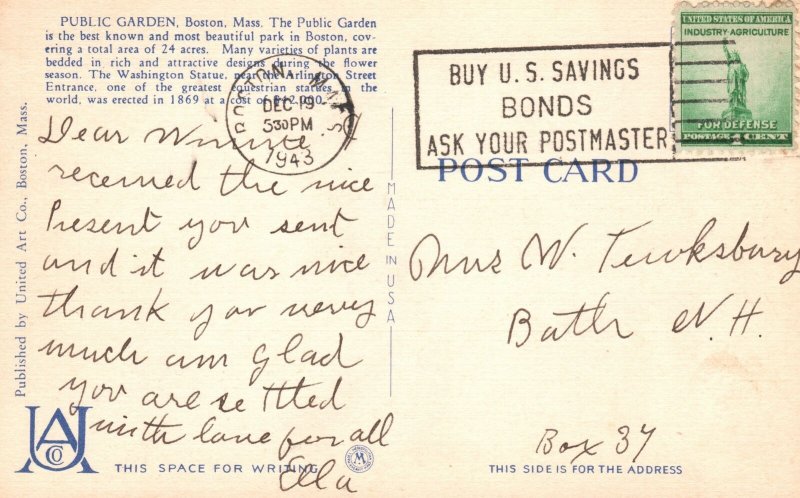 PUBLIC GARDEN, Boston, Mass. The Public Garden
is the best known and most beautiful park in Boston, cov-
ering a total area of 24 acres. Many varieties of plants are
bedded in rich and attractive designs during the flower
season. The Washington Statue, near the Arlington Street
Entrance, one of the greatest equestrian statues in the
world, was erected in 1869 at a cost of $42,000.
BOSTON, MASS
DEC 19
530PM
1943
BUY U.S. SAVINGS
BONDS
ASK YOUR POSTMASTER
UNITED STATES OF AMERICA
INDUSTRY-AGRICULTURE
FOR DEFENSE
POSTAGE 1 CENT
POST CARD
Dear Winnie I
received the nice
Present you sent
and it was nice
thank you very
much am glad
you are settled
with love for all
Ella
Mrs W. Tewksbury
Bath N.H.
Box 37
MADE IN USA
Published by United Art Co., Boston, Mass.
UA
CO
THIS SPACE FOR WRITING
M
THIS SIDE IS FOR THE ADDRESS